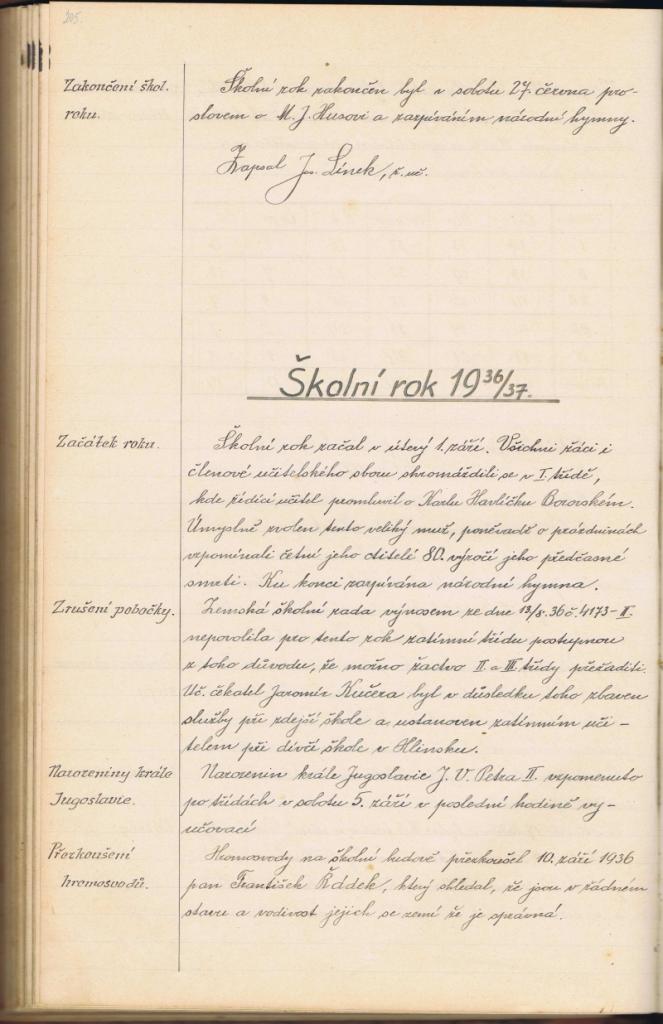 205.
Zakončení škol.
roku.
Školní rok zakončen byl v sobotu 27. června pro-
slovem o M. J. Husovi a zazpíváním národní hymny.
Zapsal Jos. Línek, ř. uč.
Školní rok 1936/37.
Začátek roku.
Školní rok začal v úterý 1. září. Všichni žáci i
členové učitelského sboru shromáždili se v I. třídě,
kde řídící učitel promluvil o Karlu Havlíčku Borovském.
Úmyslně zvolen tento veliký muž, poněvadž o prázdninách
vzpomínali četní jeho ctitelé 80. výročí jeho předčasné
smrti. Ku konci zazpívána národní hymna.
Zrušení pobočky.
Zemská školní rada výnosem ze dne 13/8. 36 č. 4173-II.
nepovolila pro tento rok zatímní třídu postupnou
z toho důvodu, že možno žactvo II. a III. třídy přeřaditi.
Uč. čekatel Jaromír Kučera byl v důsledku toho zbaven
služby při zdejší škole a ustanoven zatímním uči-
telem při dívčí škole v Hlinsku.
Narozeniny krále
Jugoslavie.
Narozenin krále Jugoslavie J. V. Petra II. vzpomenuto
po třídách v sobotu 5. září v poslední hodině vy-
učovací
Přezkoušení
hromosvodů.
Hromosvody na školní budově přezkoušel 10. září 1936
pan František Řádek, který shledal, že jsou v řádném
stavu a vodivost jejich se zemí že je správná.